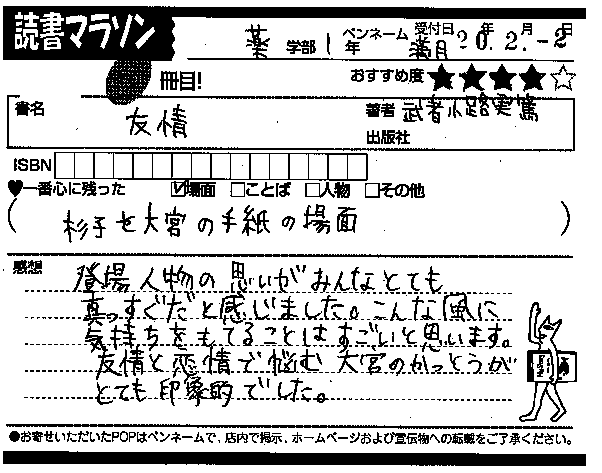 読書マラソン
冊目!
薬 学部 1 年
ペンネーム 満月
受付日 20年 2月 -2日
おすすめ度 ★★★★☆
書名 友情
著者 武者小路実篤
出版社
ISBN
♥一番心に残った ☑場面 □ことば □人物 □その他
(杉子と大宮の手紙の場面)
感想
登場人物の思いがみんなとても
真っすぐだと感じました。こんな風に
気持ちをもてることはすごいと思います。
友情と恋情で悩む大宮のかっとうが
とても印象的でした。
●お寄せいただいたPOPはペンネームで、店内で掲示、ホームページおよび宣伝物への転載をご了承ください。